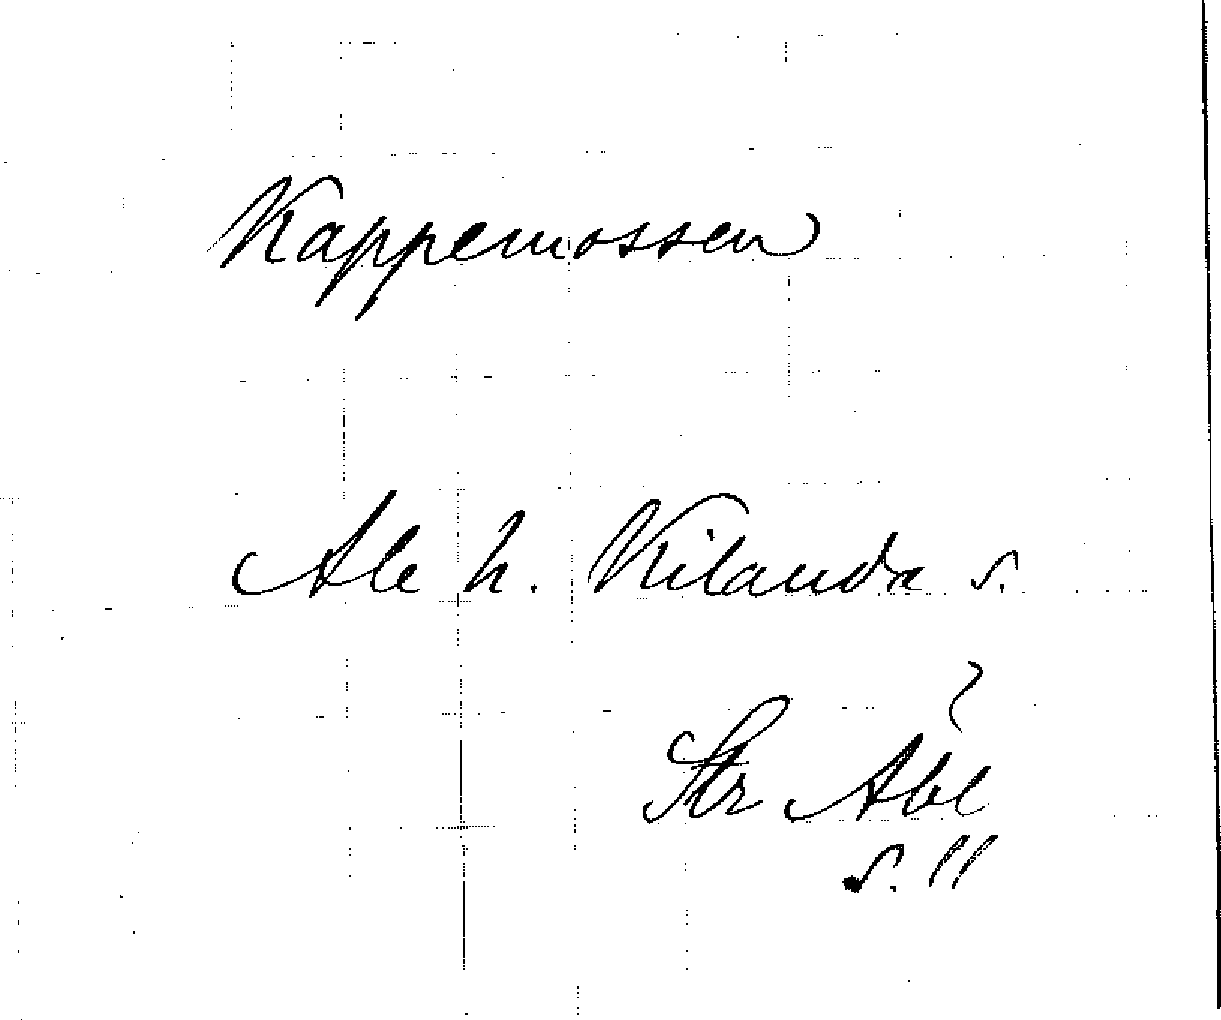 Kappemossen
Ale h. Kilanda s.
Str Abl
s. 11